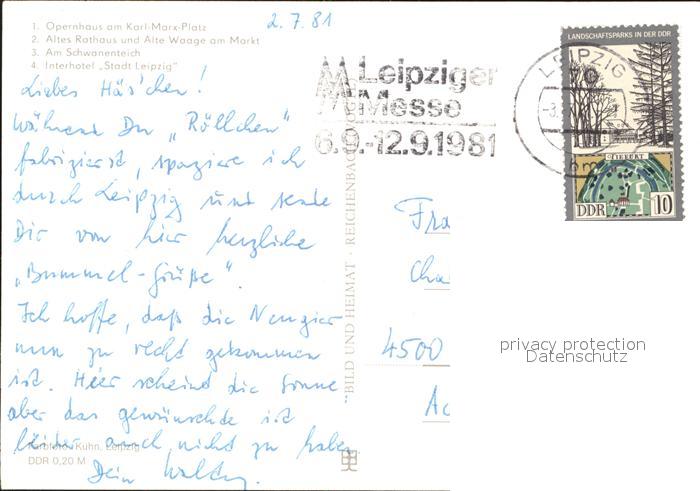 2.7.81
1. Opernhaus am Karl-Marx-Platz
2. Altes Rathaus und Alte Waage am Markt
3. Am Schwanenteich
4. Interhotel „Stadt Leipzig"
Liebes Häs'chen!
Während Du „Röllchen"
fabrizierst, spaziere ich
durch Leipzig und sende
Dir von hier herzliche
„Bummel-Grüße".
Ich hoffe, daß die
nun zu recht gekommen
ist. Hier scheint die Sonne
aber das gewünschte ist
leider auch nicht zu haben.
Dein
Farbfoto: Kühn, Leipzig
DDR 0,20 M
BILD UND HEIMAT · REICHENBACH
Leipziger
Messe
6.9.-12.9.1981
LEIPZIG
LANDSCHAFTSPARKS IN DER DDR
TIEFURT
DDR 10
Fra
Cha
4500
privacy protection
Datenschutz